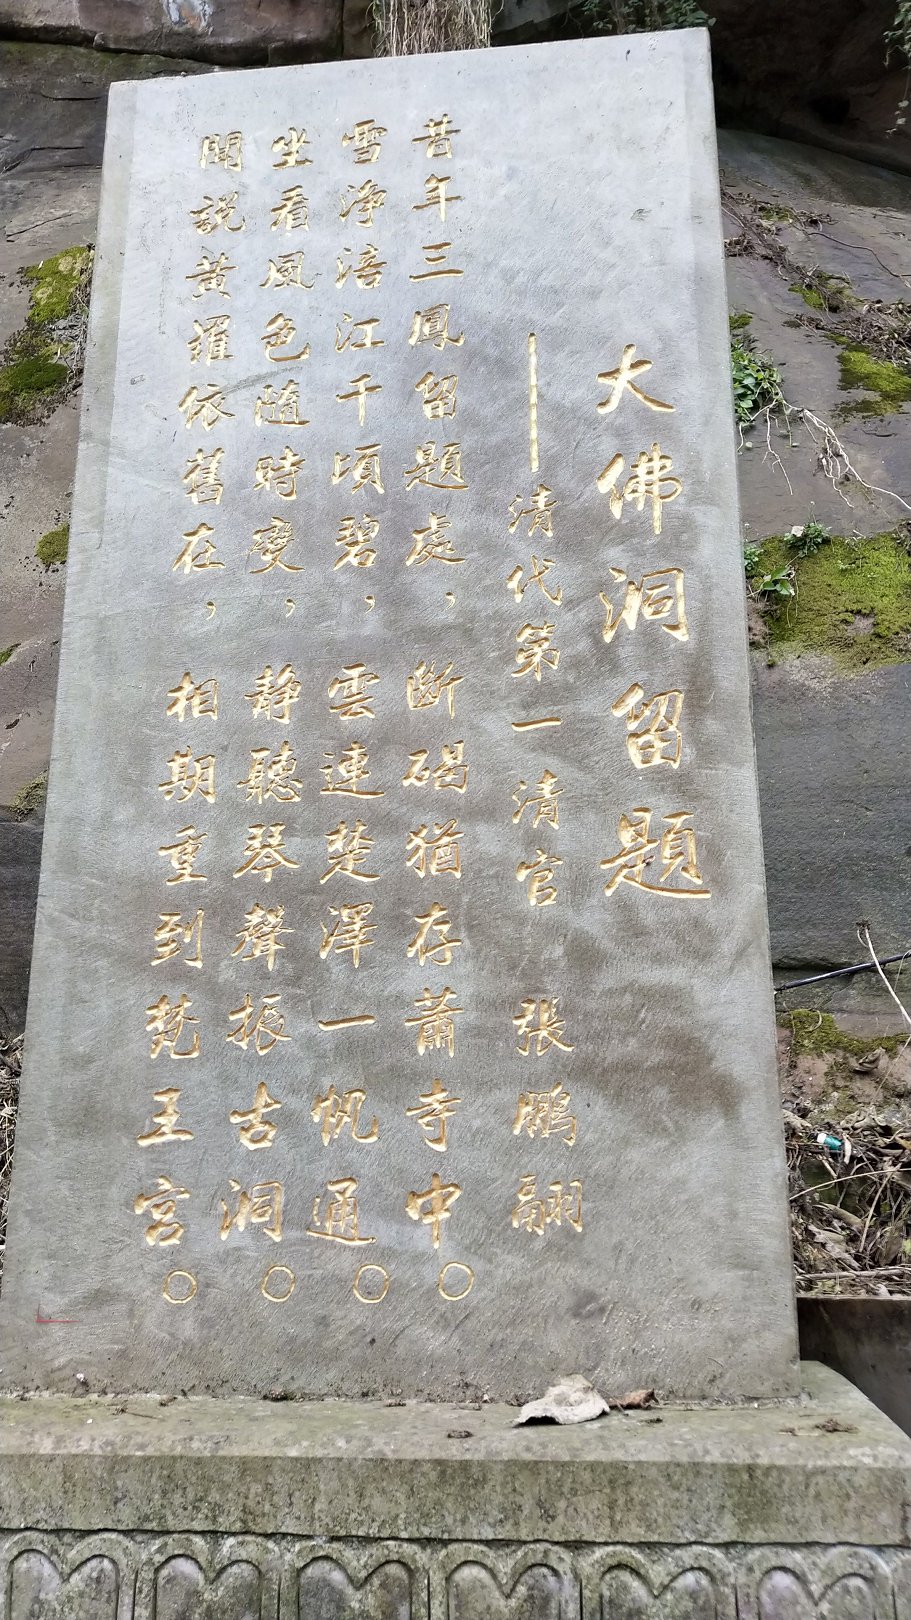 大佛洞留題
——清代第一清官 張鵬翮
昔年三鳳留題處，斷碣猶存蕭寺中。
雪淨涪江千頃碧，雲連楚澤一帆通。
坐看風色隨時變，静聽琴聲振古洞。
聞説黄羅依舊在，相期重到梵王宫。